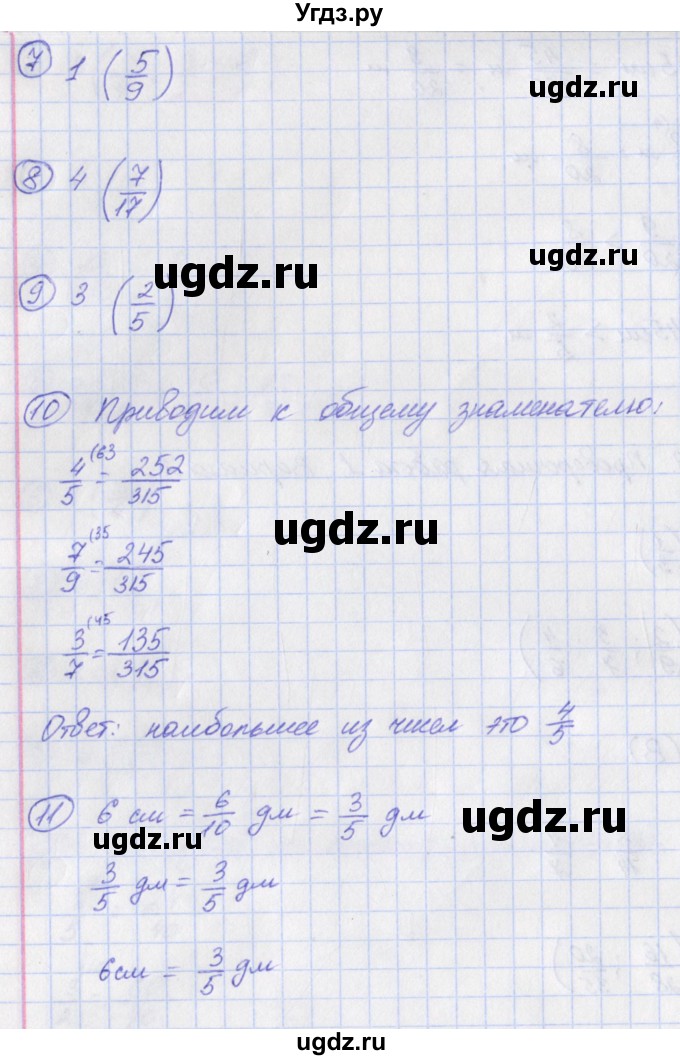 Угдз.ру
7 1 (5/9)
ugdz.ru
8 4 (7/17)
ugdz.ru
ugdz.ru
9 3 (2/5)
10 Приводим к общему знаменателю:
4/5 (63 = 252/315
ugdz.ru
7/9 (35 = 245/315
3/7 (45 = 135/315
Ответ: наибольшее из чисел это 4/5
11 6 см = 6/10 дм = 3/5 дм
ugdz.ru
ugdz.ru
3/5 дм = 3/5 дм
6см = 3/5 дм
ugdz.ru